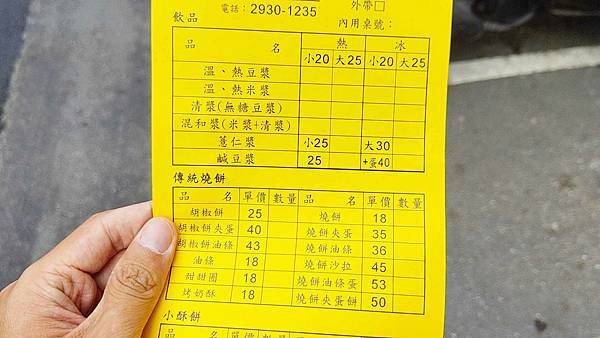 電話：2930-1235
外帶□
飲品
內用桌號：
品 名 熱 冰
小20 大25 小20 大25
溫、熱豆漿
溫、熱米漿
清漿(無糖豆漿)
混和漿(米漿+清漿)
薏仁漿 小25 大30
鹹豆漿 25 +蛋40
傳統燒餅
品 名 單價 數量 品 名 單價 數量
胡椒餅 25 燒餅 18
胡椒餅夾蛋 40 燒餅夾蛋 35
胡椒餅油條 43 燒餅油條 36
油條 18 燒餅沙拉 45
甜甜圈 18 燒餅油條蛋 53
烤奶酥 18 燒餅夾蛋餅 50
小酥餅
品 名 單價 數量 品 名 單價 數量